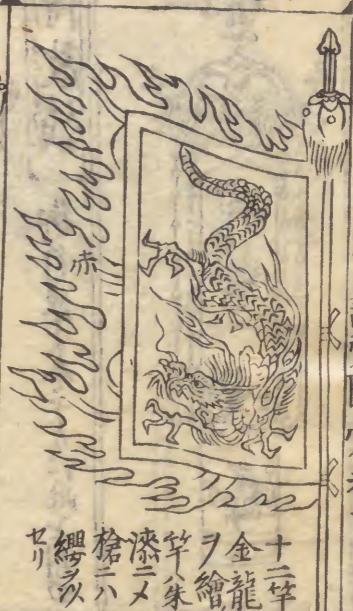 十二竿
金龍
ヲ繪
竿ハ朱
漆ニメ
槍ニハ
纓ヲ以
セリ
赤